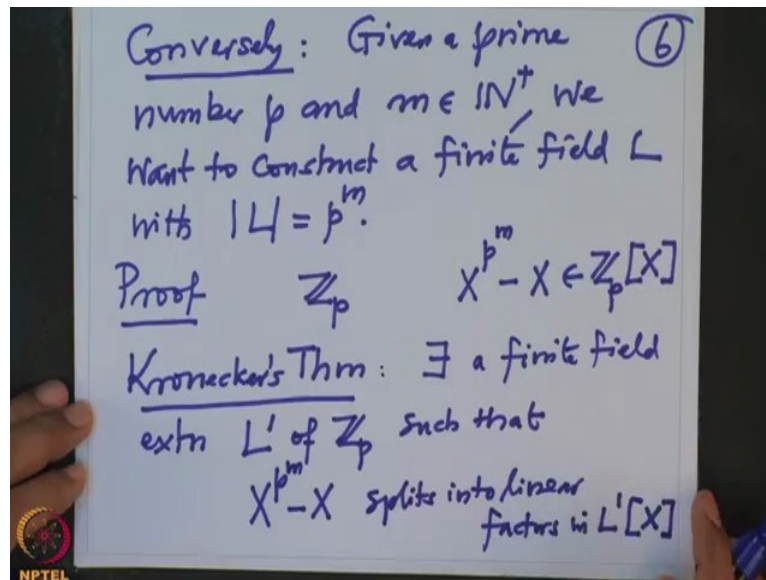 Conversely: Given a prime ⑥
number p and m ∈ ℕ⁺ we
want to construct a finite field L
with |L| = p^m.
Proof ℤ_p X^{p^m} - X ∈ ℤ_p[X]
Kronecker's Thm: ∃ a finite field
extn L' of ℤ_p such that
X^{p^m} - X splits into linear
factors in L'[X]
NPTEL